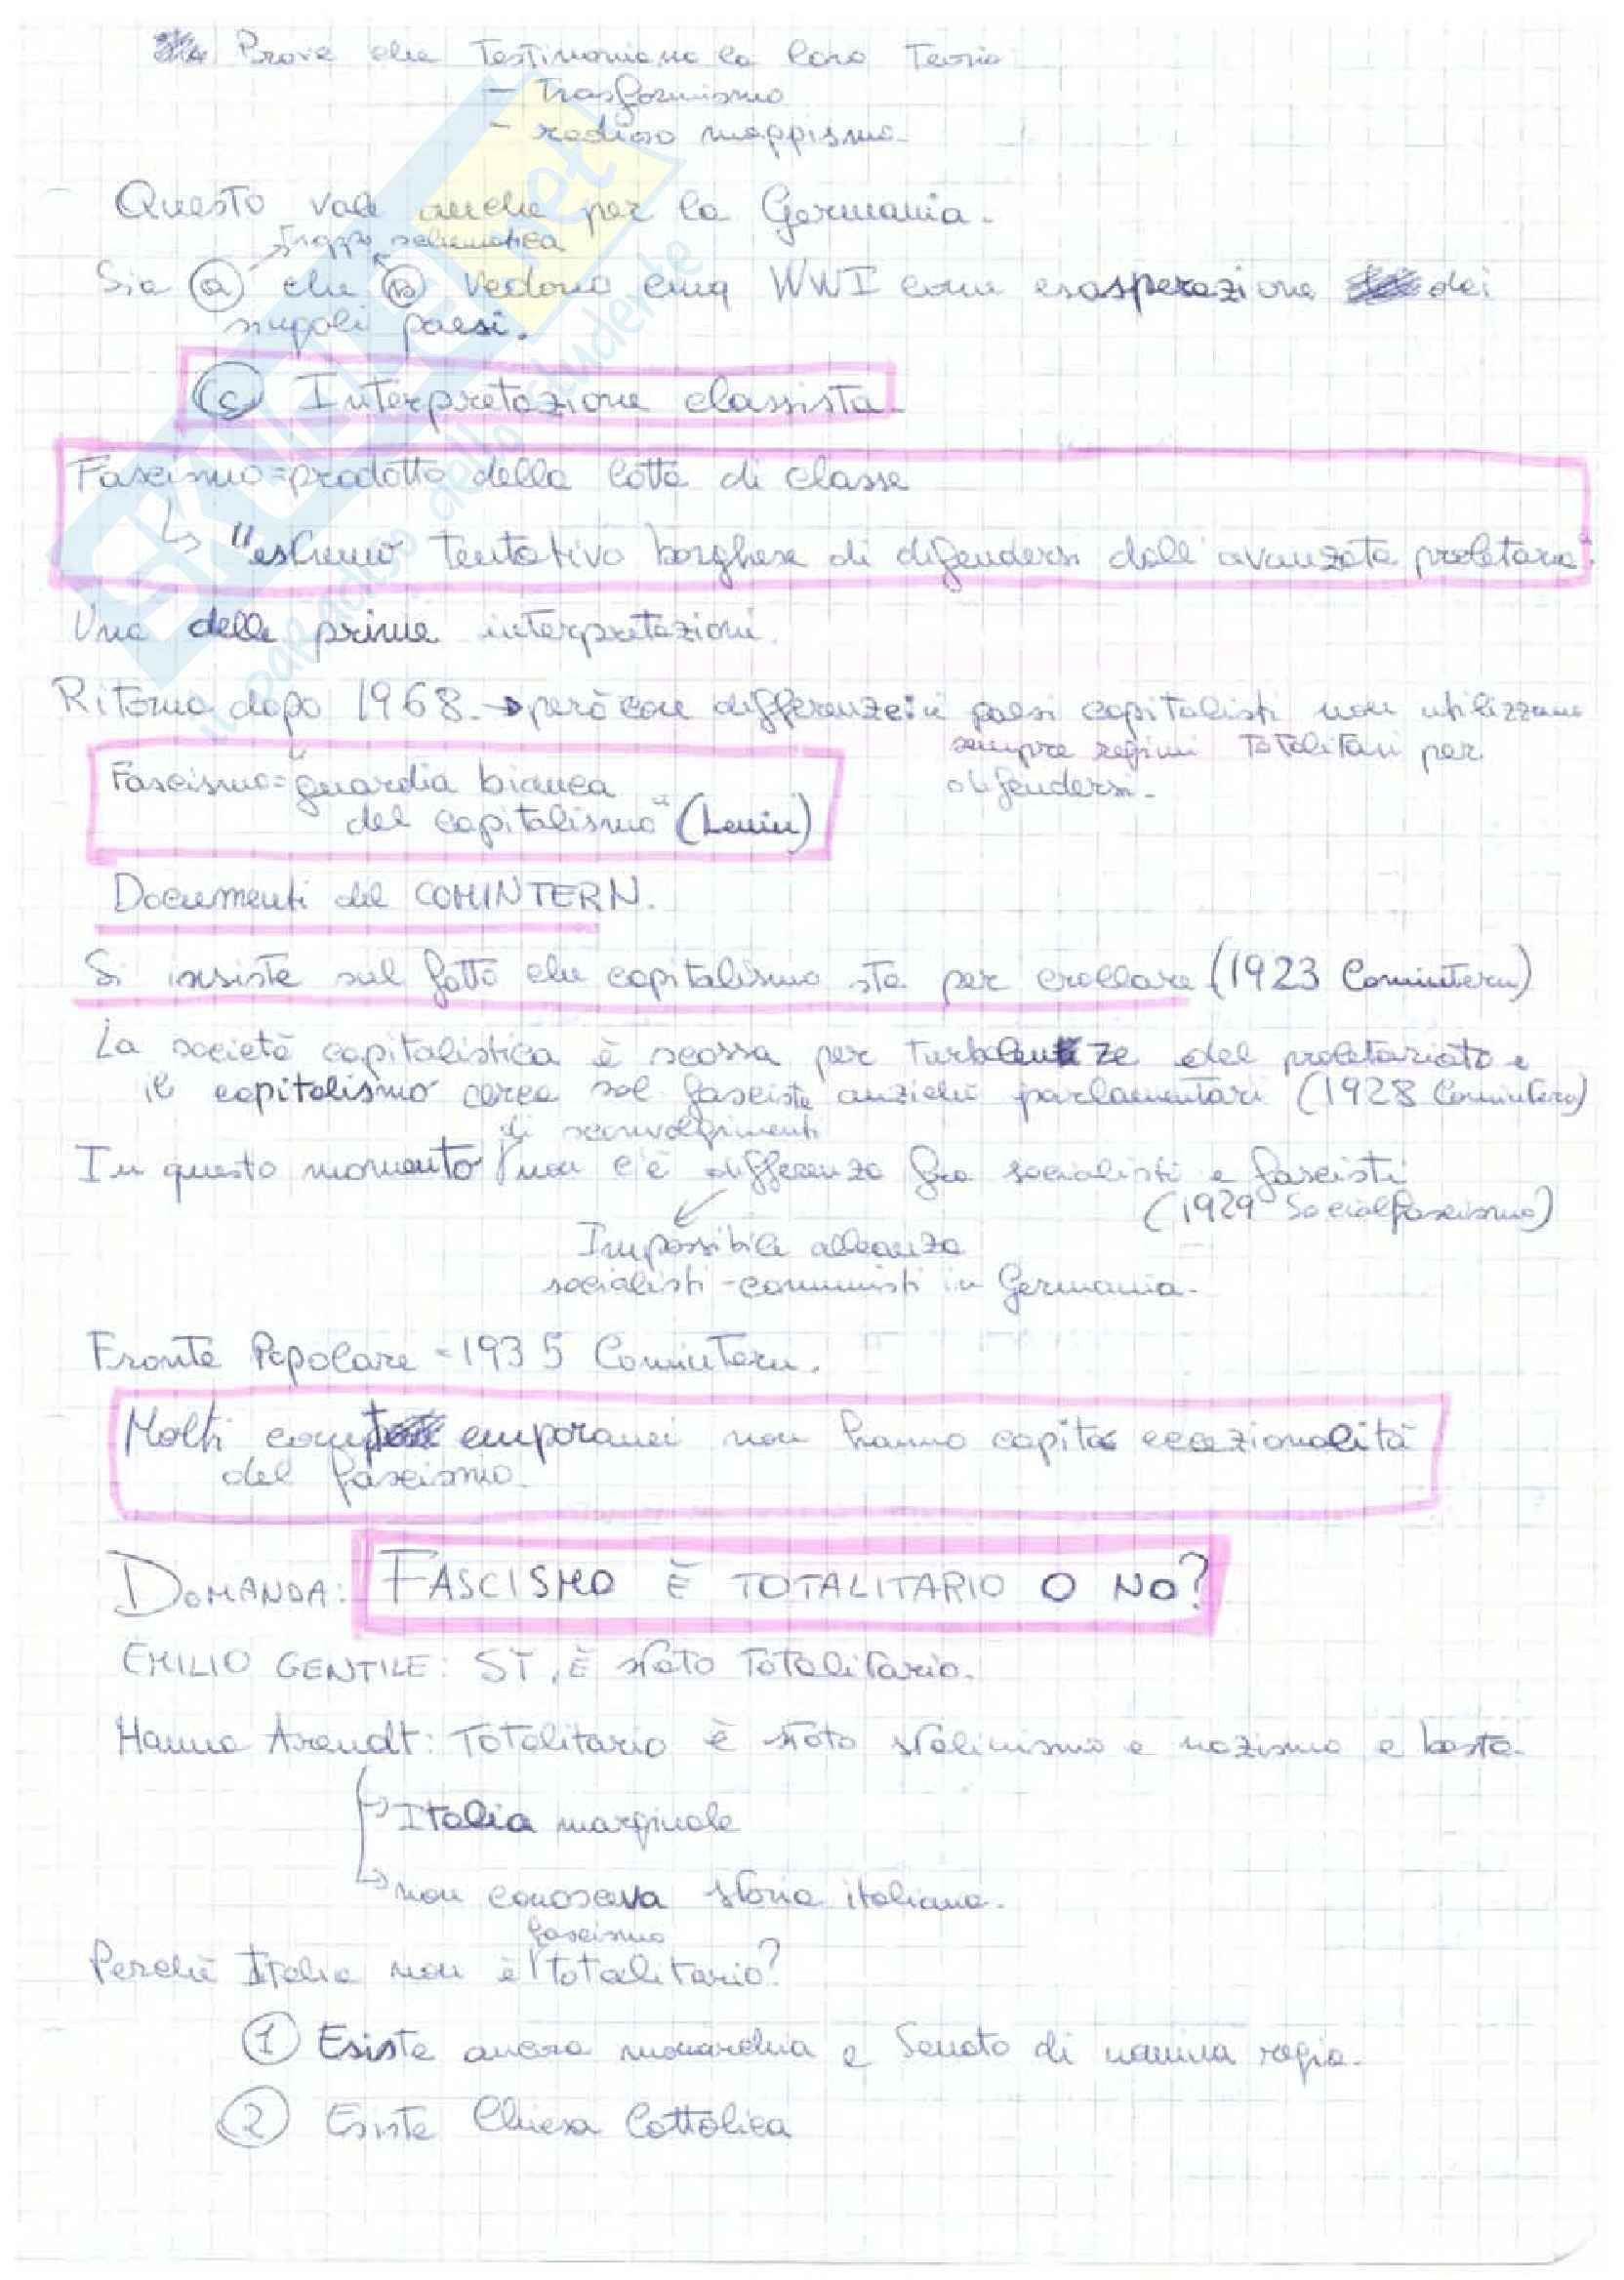 Prove che Testimoniano la loro Teoria
- Trasformismo
- radioso mappismo.
Questo vale anche per la Germania.
Troppo schematica
Sia ⓐ che ⓑ vedono cmq WWI come esasperazione dei
singoli paesi.
ⓒ Interpretazione classista.
Fascismo = prodotto della lotta di classe
↳ "estremo tentativo borghese di difendersi dall'avanzata proletaria".
Una delle prime interpretazioni.
Ritorna dopo 1968. → però con differenze: i paesi capitalisti non utilizzano
sempre regimi totalitari per
difendersi.
Fascismo = "guardia bianca
del capitalismo" (Lenin)
Documenti del COMINTERN.
Si insiste sul fatto che capitalismo sta per crollare (1923 Comintern)
La società capitalistica è scossa per turbolenze del proletariato e
il capitalismo cerca sol. fasciste anziché parlamentari (1928 Comintern)
di sconvolgimenti
In questo momento non c'è differenza fra socialisti e fascisti
(1929 Socialfascismo)
Impossibile alleanza
socialisti-comunisti in Germania.
Fronte Popolare = 1935 Comintern.
Molti contemporanei non hanno capito eccezionalità
del fascismo.
DOMANDA: FASCISMO È TOTALITARIO O NO?
EMILIO GENTILE: SÌ, È stato totalitario.
Hanna Arendt: Totalitario è stato stalinismo e nazismo e basta.
→ Italia marginale
→ non conosceva storia italiana.
fascismo
Perché Italia non è totalitario?
① Esiste ancora monarchia e Senato di nomina regia.
② Esiste Chiesa Cattolica
SKUOLA.net
il paradiso dello studente